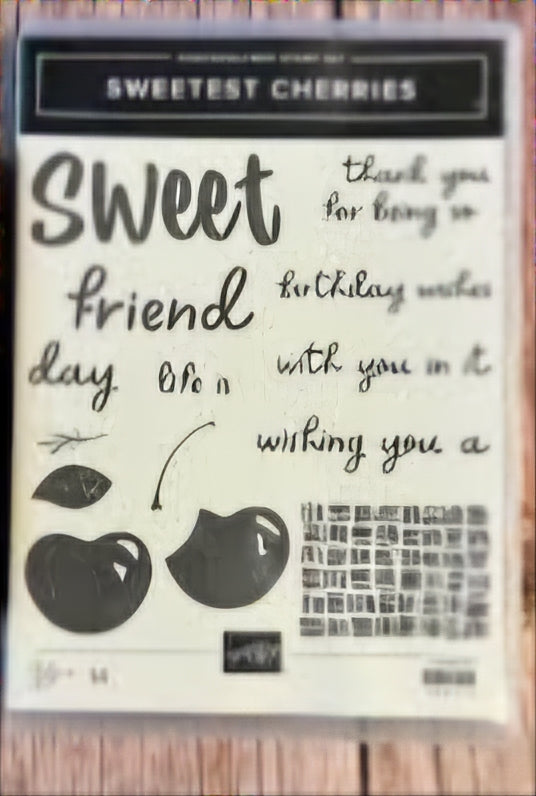 SWEETEST CHERRIES
sweet
thank you
for being so
friend
birthday wishes
day
life is
with you in it
wishing you a